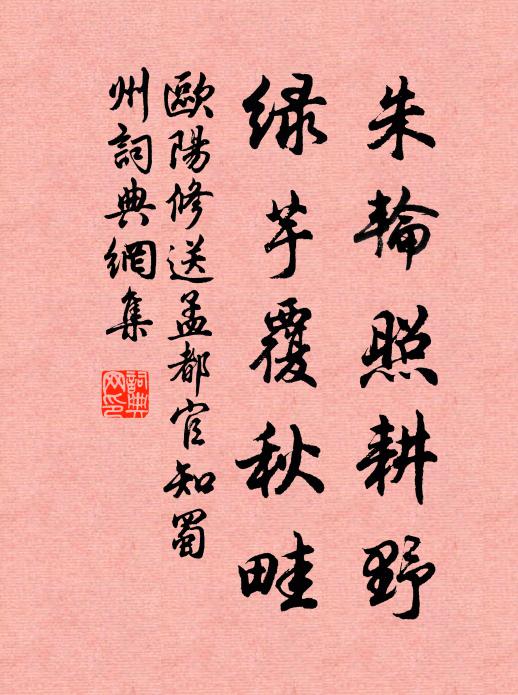 朱輪照耕野
緑芋覆秋畦
歐陽修送孟都官知蜀
州詞典網集
詞典
网印